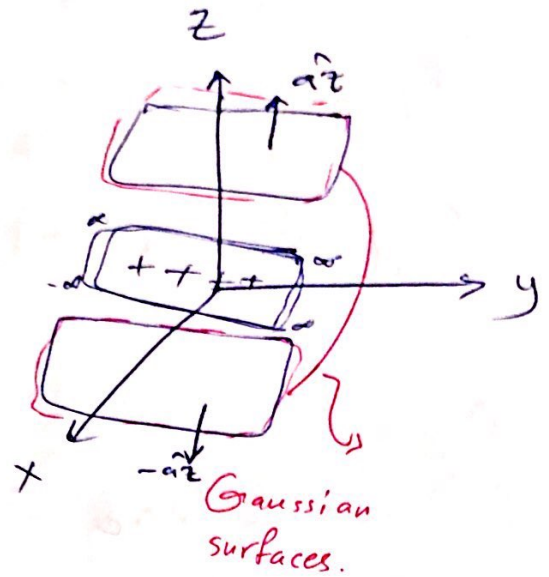 z
âz
∝ ∞
+ + + +
-∞
y
∞
x
-âz
Gaussian
surfaces.